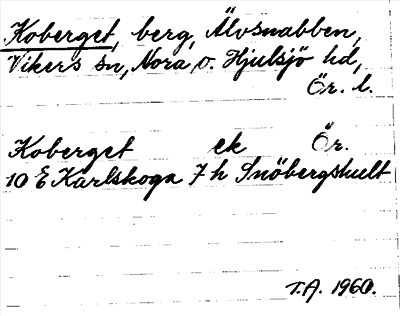 Koberget, berg, Älvsnabben,
Vikers sn, Nora o. Hjulsjö hd,
Ör. l.
Koberget ek Ör.
10 E Karlskoga 7 h Snöbergshult
T.A. 1960.